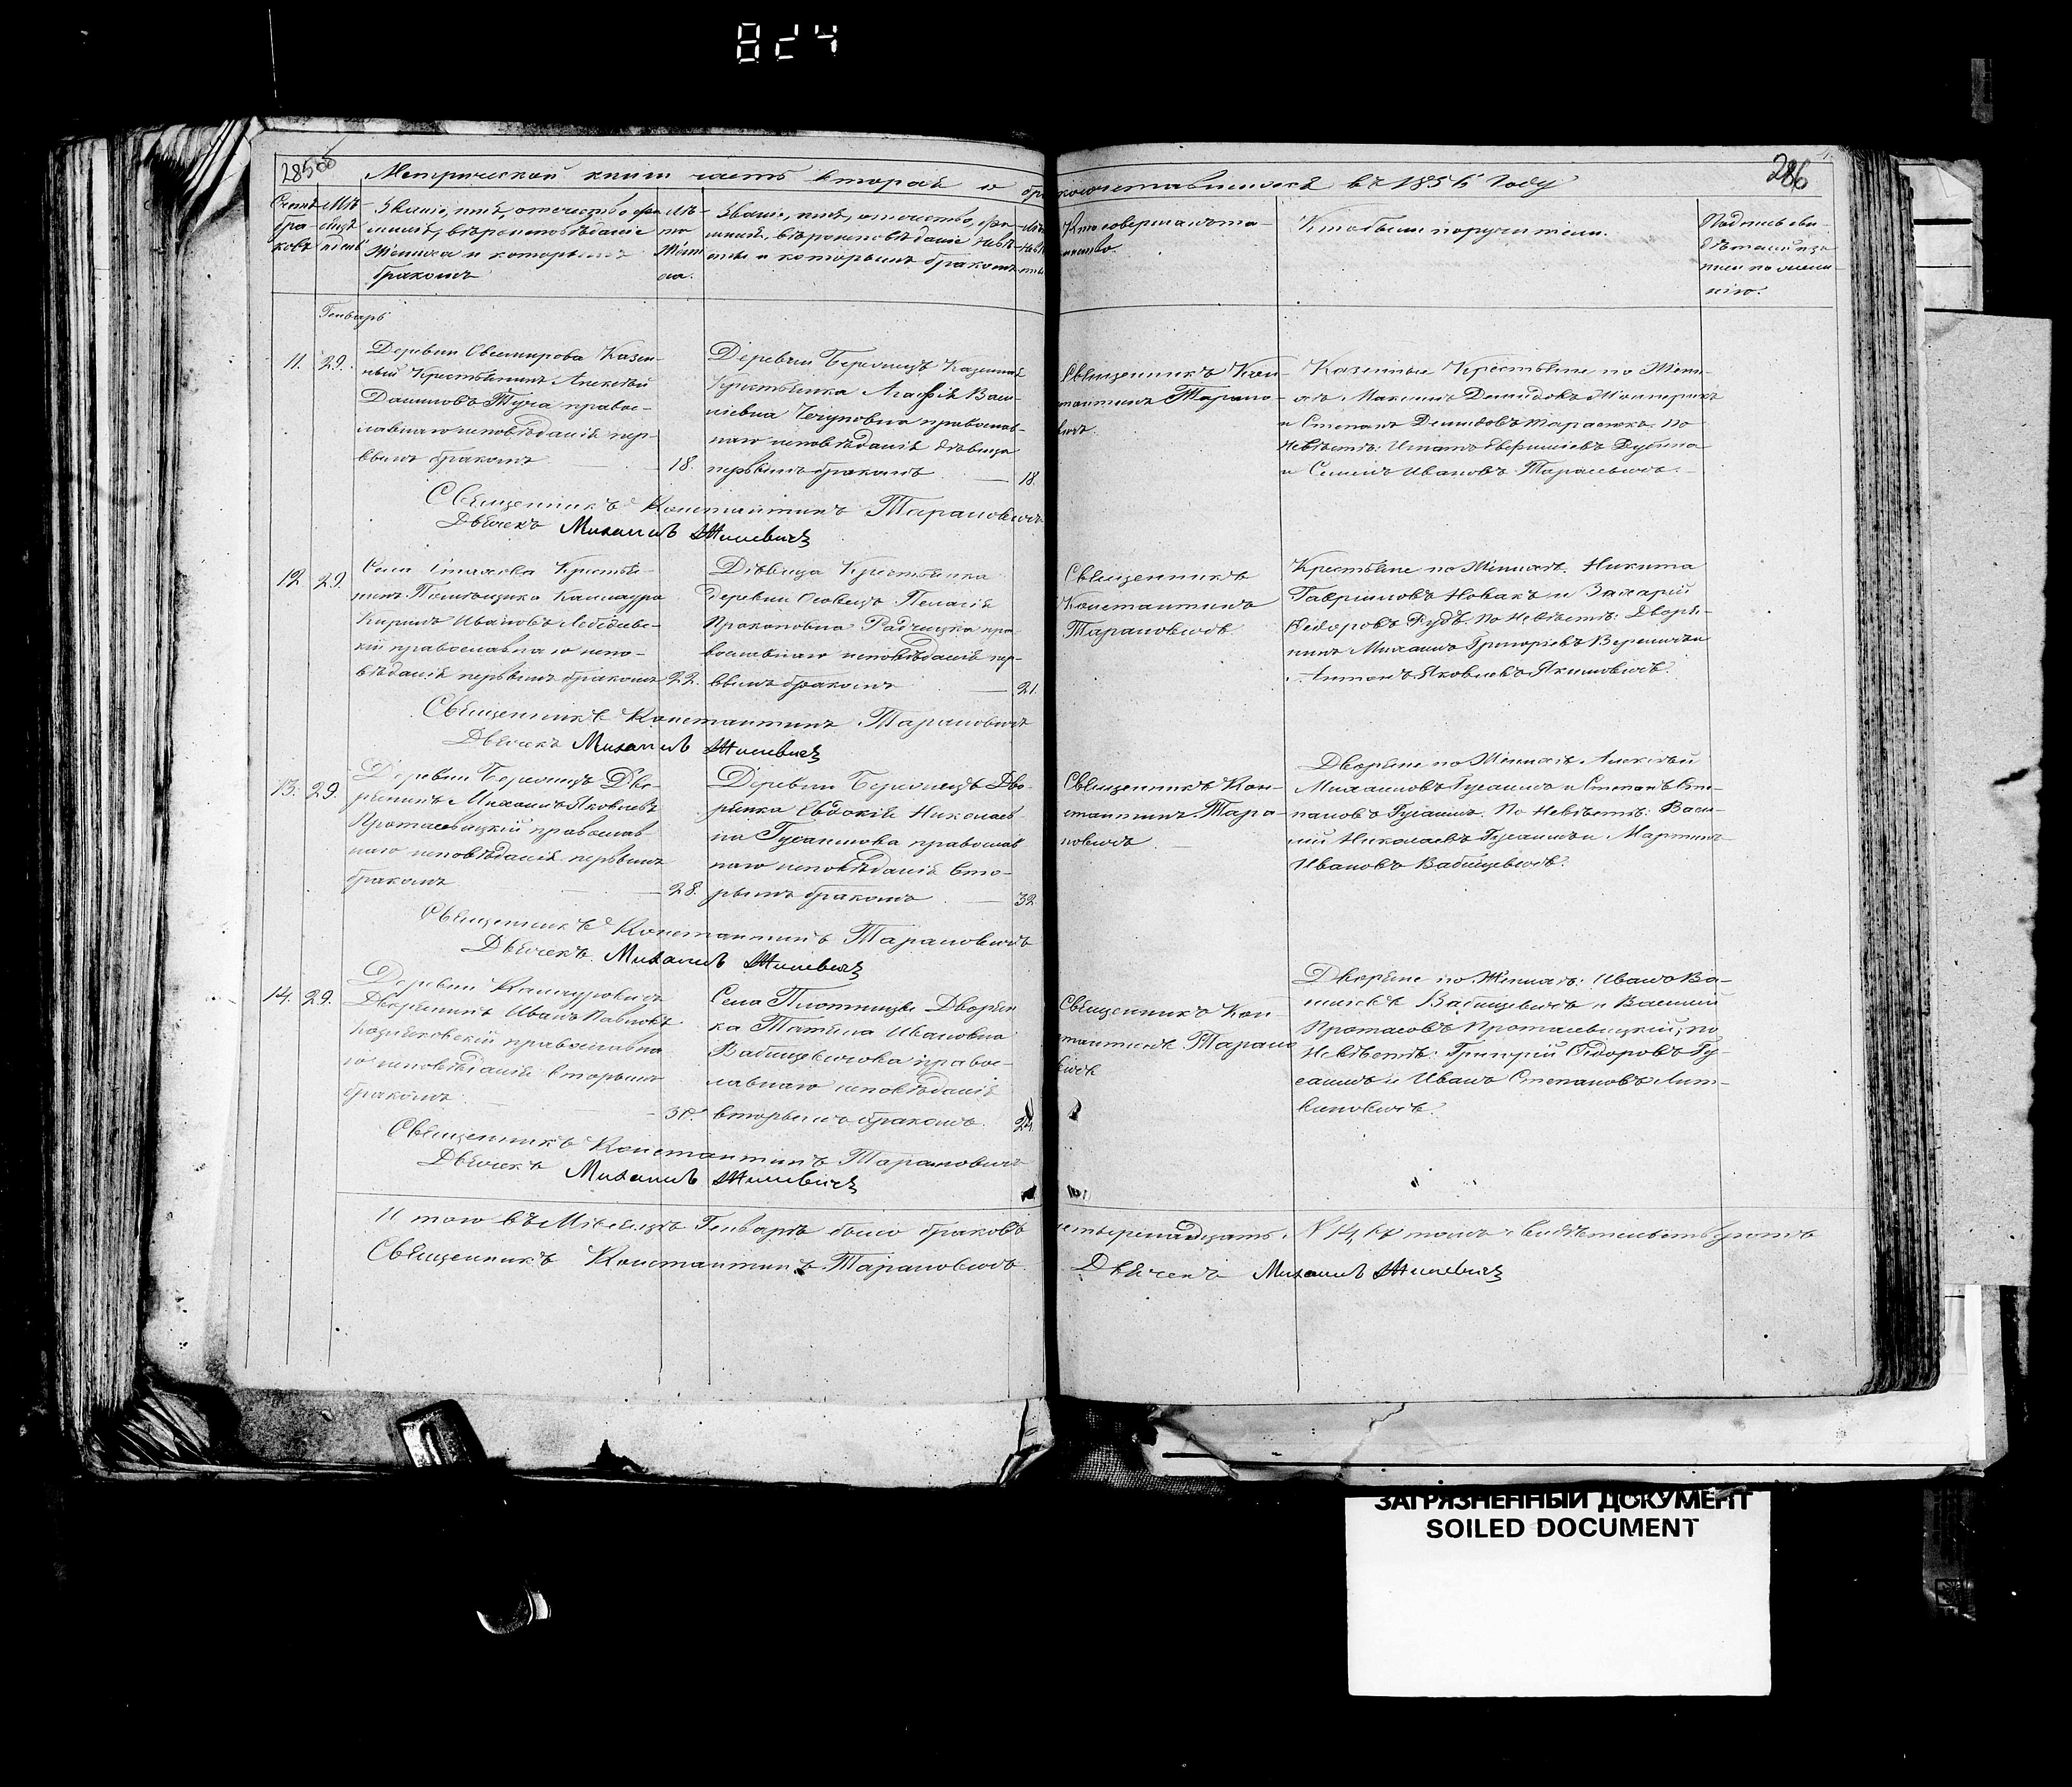 824
285
286
Метрической книги часть вторая о бракосочетавшихся въ 1856 Году
Счетъ браковъ
Мѣсяцъ и день
Званіе, имя, отечество, фамилія, вѣроисповѣданіе Жениха и которымъ бракомъ
Лѣта Жениха.
Званіе, имя, отечество, фамилія, вѣроисповѣданіе Невѣсты и которымъ бракомъ
Лѣта Невѣсты
Кто совершалъ таинство.
Кто были поручители.
Генварь
11. 29.
Деревни Казен-
ный Крестьянинъ Алексѣй
Даниловъ Туча правос-
лавнаго исповѣданія пер-
вымъ бракомъ 18.
Деревни Бережицъ Казенная
Крестьянка Агафія Васи-
ліевна православ-
наго исповѣданія дѣвица
первымъ бракомъ 18.
Священникъ Кон-
стантинъ Тарано-
вичъ.
Казенные Крестьяне по Жени-
хѣ: Максимъ Демидовъ
и Степанъ Демидовъ Тарасюкъ. По
Невѣстѣ: Игнатъ
и Семенъ Ивановъ Тарасевичъ.
Священникъ Константинъ Тарановичъ
Дьячекъ Михаилъ Жилевичъ
12. 29.
Села Крестья-
нинъ Помѣщика
Кирилъ Ивановъ
православнаго испо-
вѣданія первымъ бракомъ 22.
Дѣвица Крестьянка
деревни Осовецъ Пелагія
Прокоповна Радчицка пра-
вославнаго исповѣданія пер-
вымъ бракомъ 21.
Священникъ
Константинъ
Тарановичъ.
Крестьяне по Женихѣ: Никита
Гавриловъ Новакъ и Захарій
Ѳедоровъ Рудъ. По Невѣстѣ: Дворя-
нинъ Михаилъ Григорьевъ Вереничъ и
Антонъ Яковлевъ Якимовичъ.
Священникъ Константинъ Тарановичъ
Дьячекъ Михаилъ Жилевичъ
13. 29.
Деревни Бережицъ Дво-
рянинъ Михаилъ Яковлевъ
Протасевицкій православ
наго исповѣданія первымъ
бракомъ 28.
Деревни Бережицъ Дво-
рянка Евдокія Николаев-
на Гусакиова православ
наго исповѣданія вто-
рымъ бракомъ 32
Священникъ Кон-
стантинъ Тара-
новичъ
Дворяне по Женихѣ Алексѣй
Михаиловъ и Степанъ Сте-
пановъ По Невѣстѣ: Васи-
лій Николаевъ и Мартинъ
Ивановъ Бабищевичъ.
Священникъ Константинъ Тарановичъ
Дьячекъ Михаилъ Жилевичъ
14. 29.
Деревни Каллауровичъ
Дворянинъ Иванъ Павловъ
Козляковскій православна
го исповѣданія вторымъ
бракомъ
Села Плотницы Дворян
ка Татьяна Ивановна
Бабищевичова правос-
лавнаго исповѣданія
вторымъ бракомъ. 24.
Священникъ Кон-
стантинъ Тарано
вичъ
Дворяне по Женихѣ: Иванъ Ва-
силіевъ Бабищевичъ и Василій
Протасовъ Протасевицкій; по
Невѣстѣ: Григорій Ѳедоровъ Гу-
сакъ и Иванъ Степановъ Лит-
виновичъ.
Священникъ Константинъ Тарановичъ
Дьячекъ Михаилъ Жилевичъ
Итого въ Мѣсяцѣ Генварѣ было браковъ четыренадцать. № 14, въ томъ свидѣтельствуютъ
Священникъ Константинъ Тарановичъ. Дьячекъ Михаилъ Жилевичъ
ЗАГРЯЗНЕННЫЙ ДОКУМЕНТ
SOILED DOCUMENT